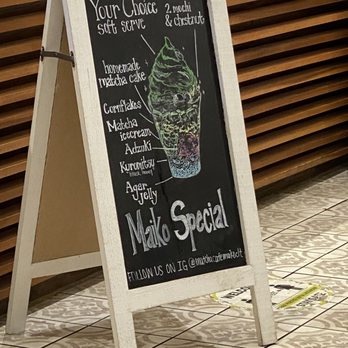 Your Choice
soft serve
2 mochi
& chestnut
homemade
matcha cake
Cornflakes
Matcha
icecream
Adzuki
Kuromitsu
Agar
jelly
Maiko Special
FOLLOW US ON IG